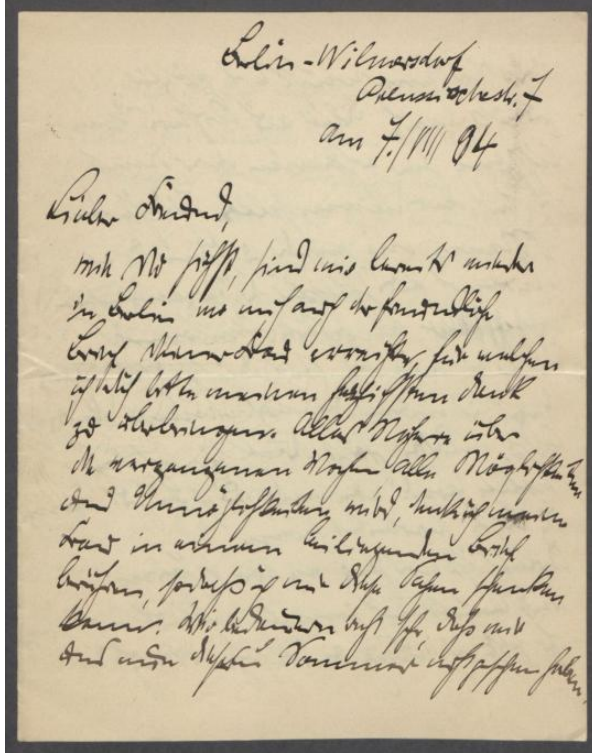 Berlin-Wilmersdorf
Preussischestr. 7
am 7./VIII 94
Lieber Freund,
wie Du siehst, sind wir bereits wieder
in Berlin wo mich auch der freundliche
Brief Deiner Frau erreichte, für welchen
ich Dich bitte meinen herzlichsten Dank
zu überbringen. Alles Nähere über
die vergangenen Wochen alle Möglichkeiten
und Unmöglichkeiten wird, denk ich meine
Frau in einem beiliegenden Brief
berühren, sodass ich mir diese Sachen schenken
kann. Wir bedauern recht sehr, dass wir
uns nun diesen Sommer nicht gesehen haben,